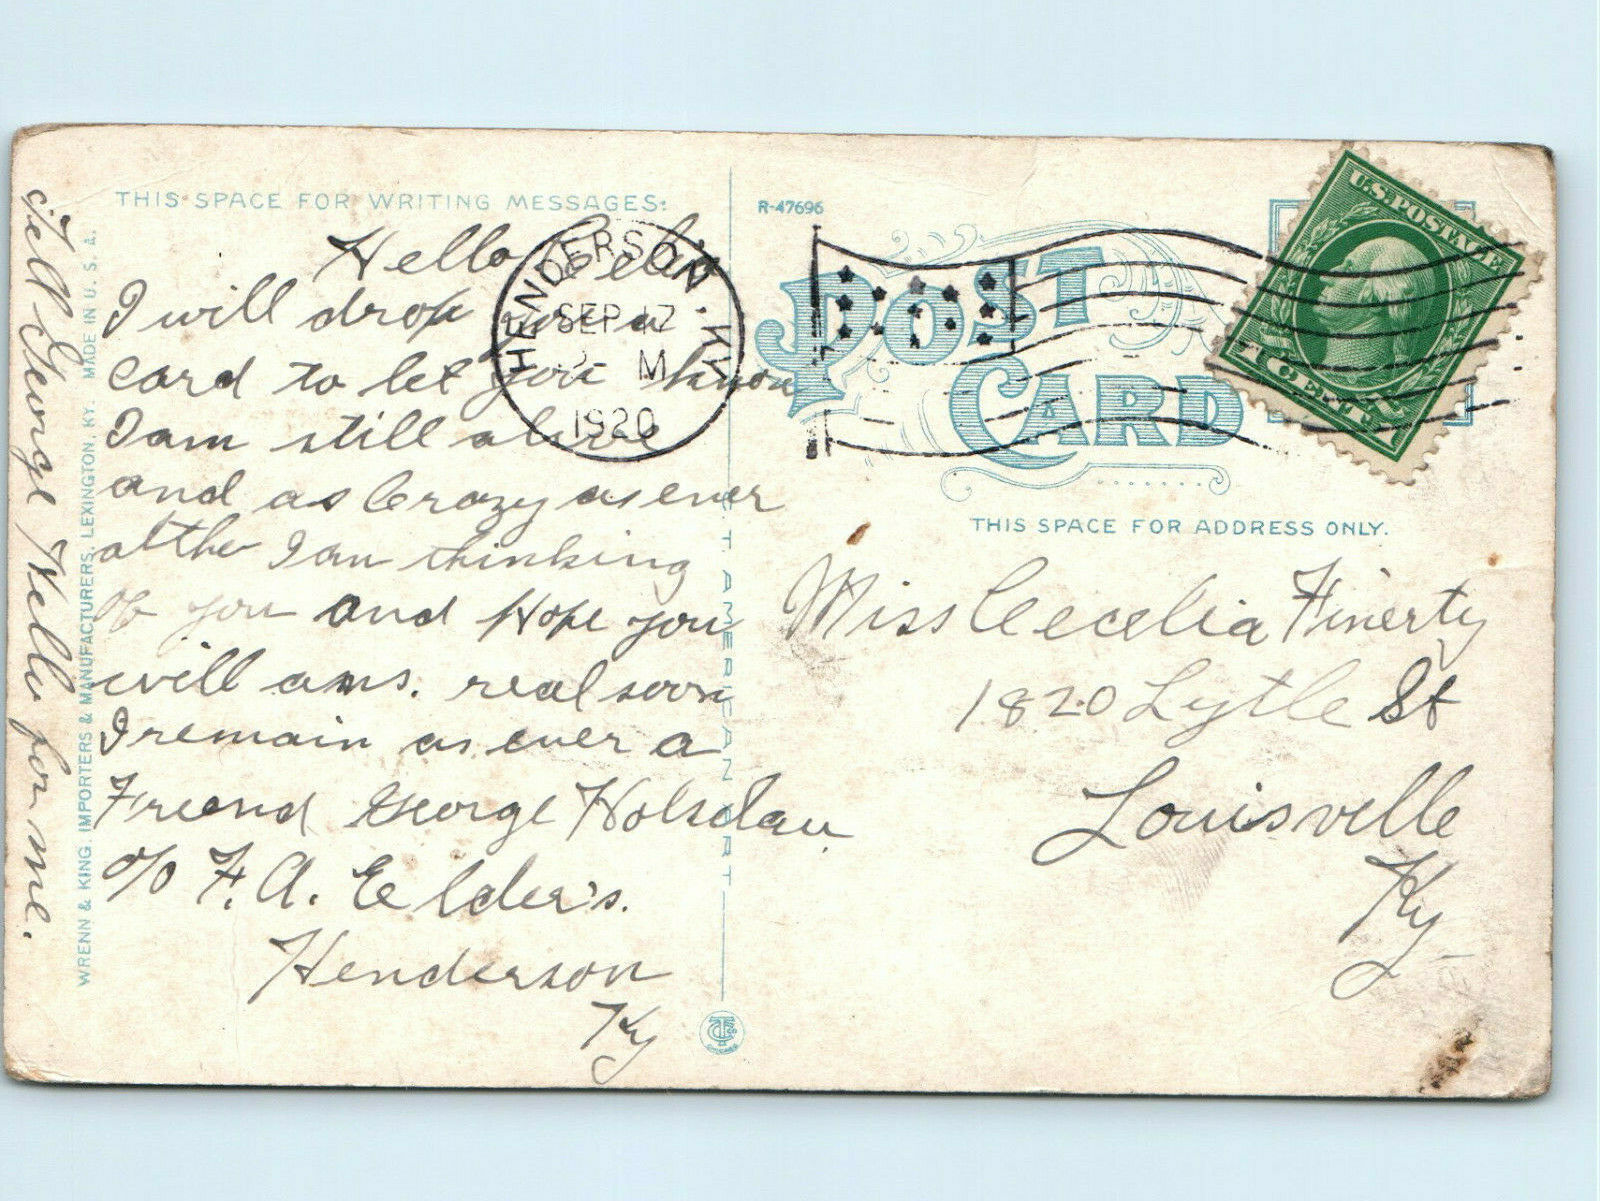 THIS SPACE FOR WRITING MESSAGES:
Hello
I will drop you a
Card to let you know
I am still alive
and as Crazy as ever
I am thinking
of you and Hope you
will ans. real soon
I remain as ever a
Freend George
c/o F. A. Elder's.
Henderson
Ky
Tell George Hello for me.
WRENN & KING, IMPORTERS & MANUFACTURERS, LEXINGTON, KY. MADE IN U. S. A.
C. T. AMERICAN ART
HENDERSON KY.
SEP 17
M
1920
R-47696
POST
CARD
U.S. POSTAGE
1 CENT 1
THIS SPACE FOR ADDRESS ONLY.
Miss Cecelia Finerty
1820 Lytle St
Louisville
Ky